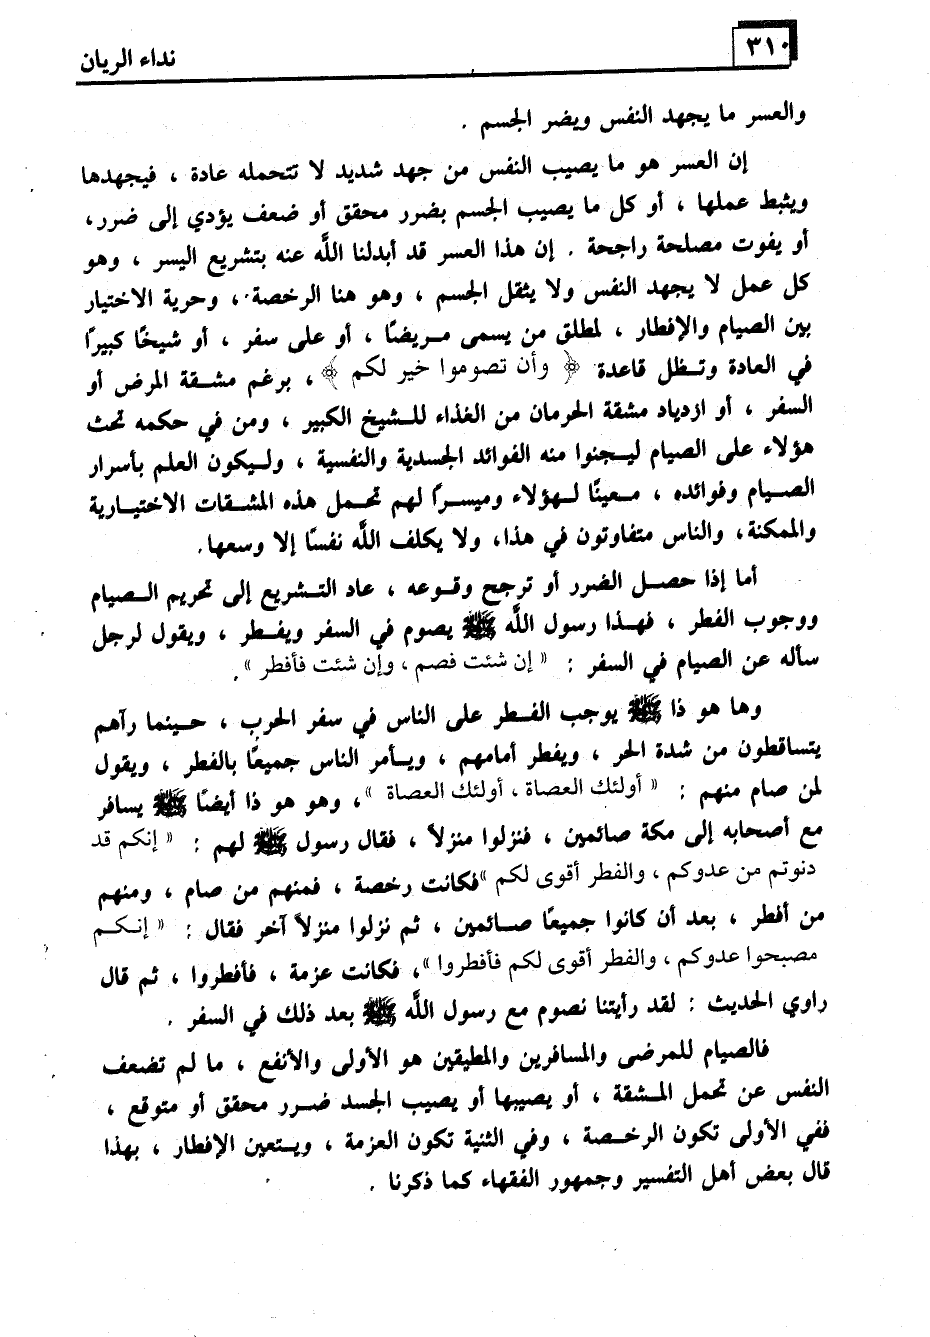 ٣١٠
نداء الريان
والعسر ما يجهد النفس ويضر الجسم .
إن العسر هو ما يصيب النفس من جهد شديد لا تتحمله عادة ، فيجهدها
ويثبط عملها ، أو كل ما يصيب الجسم بضرر محقق أو ضعف يؤدي إلى ضرر،
أو يفوت مصلحة راجحة . إن هذا العسر قد أبدلنا اللَّه عنه بتشريع اليسر ، وهو
كل عمل لا يجهد النفس ولا يثقل الجسم ، وهو هنا الرخصة ، وحرية الاختيار
بين الصيام والإفطار ، لمطلق من يسمى مـريضًا ، أو على سفر ، أو شيخًا كبيرًا
في العادة وتـظل قاعدة ﴿ وأن تصوموا خير لكم ﴾ ، برغم مشـقة المرض أو
السفر ، أو ازدياد مشقة الحرمان من الغذاء للـشيخ الكبير ، ومن في حكمه تحث
هؤلاء على الصيام ليـجنوا منه الفوائد الجسدية والنفسية ، ولـيكون العلم بأسرار
الصـيام وفوائده ، مـعينًا لـهؤلاء وميسـرًا لهم تحـمل هذه المشـقات الاختيـارية
والممكنة، والناس متفاوتون في هذا، ولا يكلف اللَّه نفسًا إلا وسعها.
أما إذا حصـل الضرر أو ترجح وقـوعه ، عاد التـشريع إلى تحريم الـصيام
ووجوب الفطر ، فهـذا رسول اللَّه ﷺ يصوم في السفر ويفـطر ، ويقول لرجل
سأله عن الصيام في السفر : « إن شئت فصم ، وإن شئت فأفطر » .
وها هو ذا ﷺ يوجب الفـطر على الناس في سفر الحرب ، حـينما رآهم
يتساقطون من شدة الحر ، ويفطر أمامهم ، ويـأمر الناس جميعًا بالفطر ، ويقول
لمن صام منهم : « أولئك العصاة ، أولئك العصاة » ، وهو هو ذا أيضًا ﷺ يسافر
مع أصحابه إلى مكة صائمين ، فنزلوا منزلاً ، فقال رسول ﷺ لهم : « إنكم قد
دنوتم من عدوكم ، والفطر أقوى لكم » فكانت رخصة ، فمنهم من صام ، ومنهم
من أفطر ، بعد أن كانوا جميعًا صـائمين ، ثم نزلوا منزلاً آخر فقال : « إنـكـم
مصبحوا عدوكم ، والفطر أقوى لكم فأفطروا » ، فكانت عزمة ، فأفطروا ، ثم قال
راوي الحديث : لقد رأيتنا نصوم مع رسول اللَّه ﷺ بعد ذلك في السفر .
فالصيام للمرضى والمسافرين والمطيقين هو الأولى والأنفع ، ما لم تضعف
النفس عن تحمل المـشقة ، أو يصيبها أو يصيب الجسد ضـرر محقق أو متوقع ،
ففي الأولى تكون الرخـصة ، وفي الثنية تكون العزمة ، ويـستعين الإفطار ، بهذا
قال بعض أهل التفسير وجمهور الفقهاء كما ذكرنا .